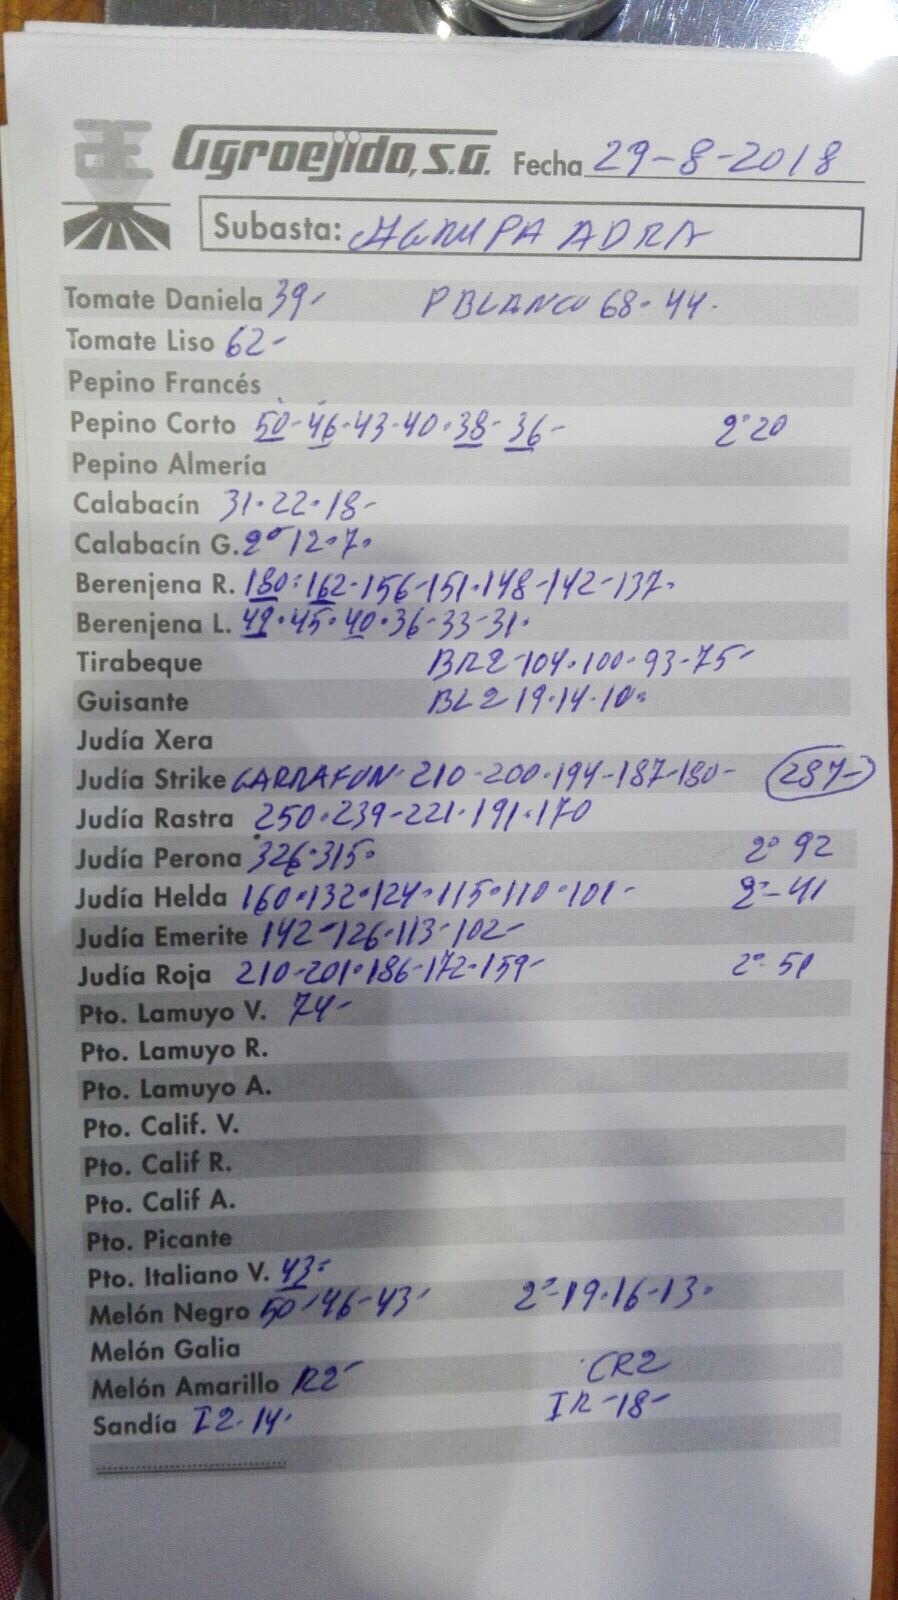 Agroejido, S.A. Fecha 29-8-2018
Subasta: AGRUPA ADRA
Tomate Daniela 39- P BLANCO 68-44.
Tomate Liso 62-
Pepino Francés
Pepino Corto 50-46-43-40-38-36- 2ª 20
Pepino Almería
Calabacín 31-22-18-
Calabacín G. 2ª 12-7.
Berenjena R. 180-162-156-151-148-142-137.
Berenjena L. 49-45-40-36-33-31.
Tirabeque BR2-104-100-93-75-
Guisante BL2 19-14-10.
Judía Xera
Judía Strike GARRAFON-210-200-194-187-180- 287-
Judía Rastra 250-239-221-191-170
Judía Perona 326-315. 2ª 92
Judía Helda 160-132-124-115-110-101- 2ª-41
Judía Emerite 142-126-113-102-
Judía Roja 210-201-186-172-159- 2ª-51
Pto. Lamuyo V. 74-
Pto. Lamuyo R.
Pto. Lamuyo A.
Pto. Calif. V.
Pto. Calif R.
Pto. Calif A.
Pto. Picante
Pto. Italiano V. 43-
Melón Negro 50-46-43- 2ª-19-16-13.
Melón Galia
Melón Amarillo R2- CR2
Sandía I2-14. IR-18-